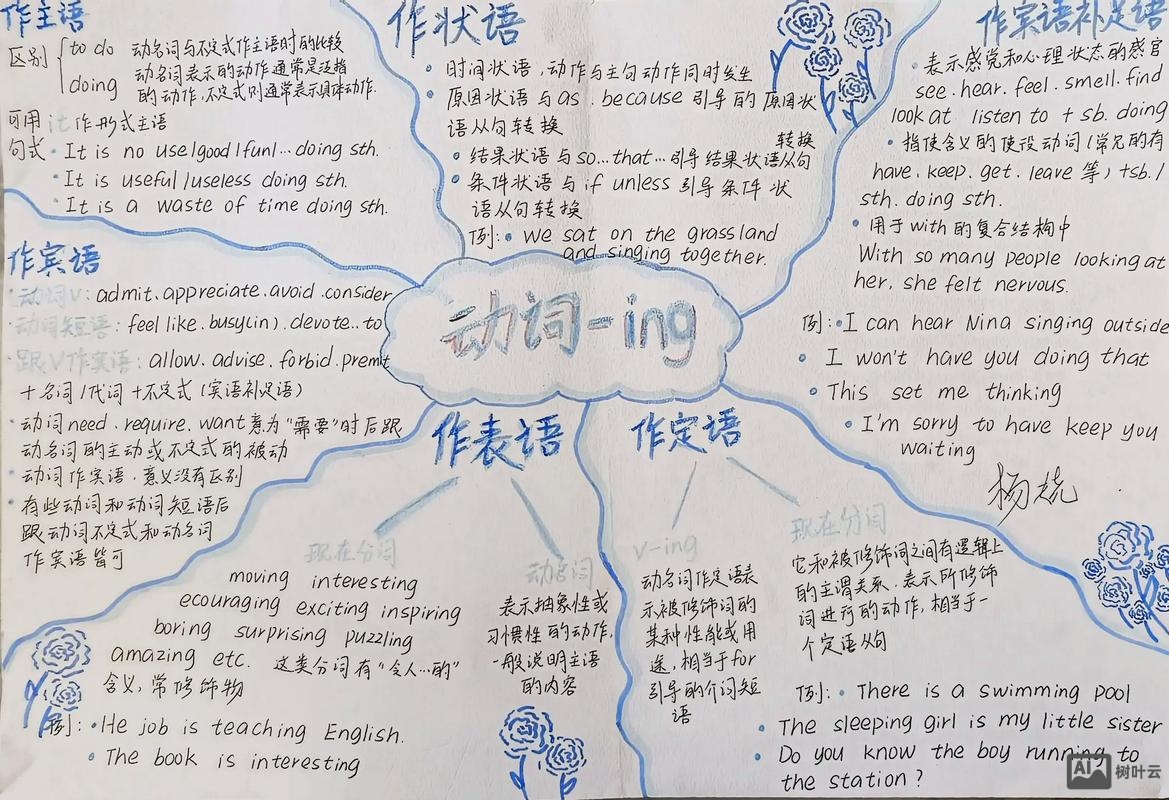 作主语
区别
to do 动名词与不定式作主语时的比较
doing 动名词表示的动作通常是泛指
的动作,不定式则通常表示具体动作.
可用it作形式主语
句式·It is no use/good/fun/…doing sth.
·It is useful/useless doing sth.
·It is a waste of time doing sth.
作宾语
·动词V:admit.appreciate.avoid.consider
·动词短语:feel like.busy(in).devote..to
·跟V作宾语:allow.advise.forbid.premit
+名词/代词+不定式(宾语补足语)
·动词need.require.want意为"需要"时后跟
动名词的主动或不定式的被动
·动词作宾语.意义没有区别
·有些动词和动词短语后
跟动词不定式和动名词
作宾语皆可
作状语
·时间状语,动作与主句动作同时发生
·原因状语与as.because引导的原因状
语从句转换
转换
·结果状语与so…that…引导结果状语从句
·条件状语与if unless引导条件状
语从句转换
例:·We sat on the grassland
and singing together.
作宾语补足语
·表示感觉和心理状态的感官
see.hear.feel.smell.find
look at listen to + sb. doing
·指使含义的使役动词(常见的有
have.keep.get.leave等)+sb./
sth. doing sth.
·用于with的复合结构中
With so many people looking at
her, she felt nervous.
例:·I can hear Nina singing outside
·I won't have you doing that
·This set me thinking
·I'm sorry to have keep you
waiting
动词-ing
作表语
现在分词
moving interesting
ecouraging exciting inspiring
boring surprising puzzling
amazing etc. 这类分词有"令人…的"
含义,常修饰物
动名词
表示抽象性或
习惯性的动作,
一般说明主语
的内容
例:·He job is teaching English.
·The book is interesting
作定语
v-ing
动名词作定语表
示被修饰词的
某种性能或用
途,相当于for
引导的介词短
语
现在分词
它和被修饰词之间有逻辑上
的主谓关系.表示所修饰
词进行的动作,相当于一
个定语从句
例:·There is a swimming pool
·The sleeping girl is my little sister
·Do you know the boy running to
the station?
树叶云